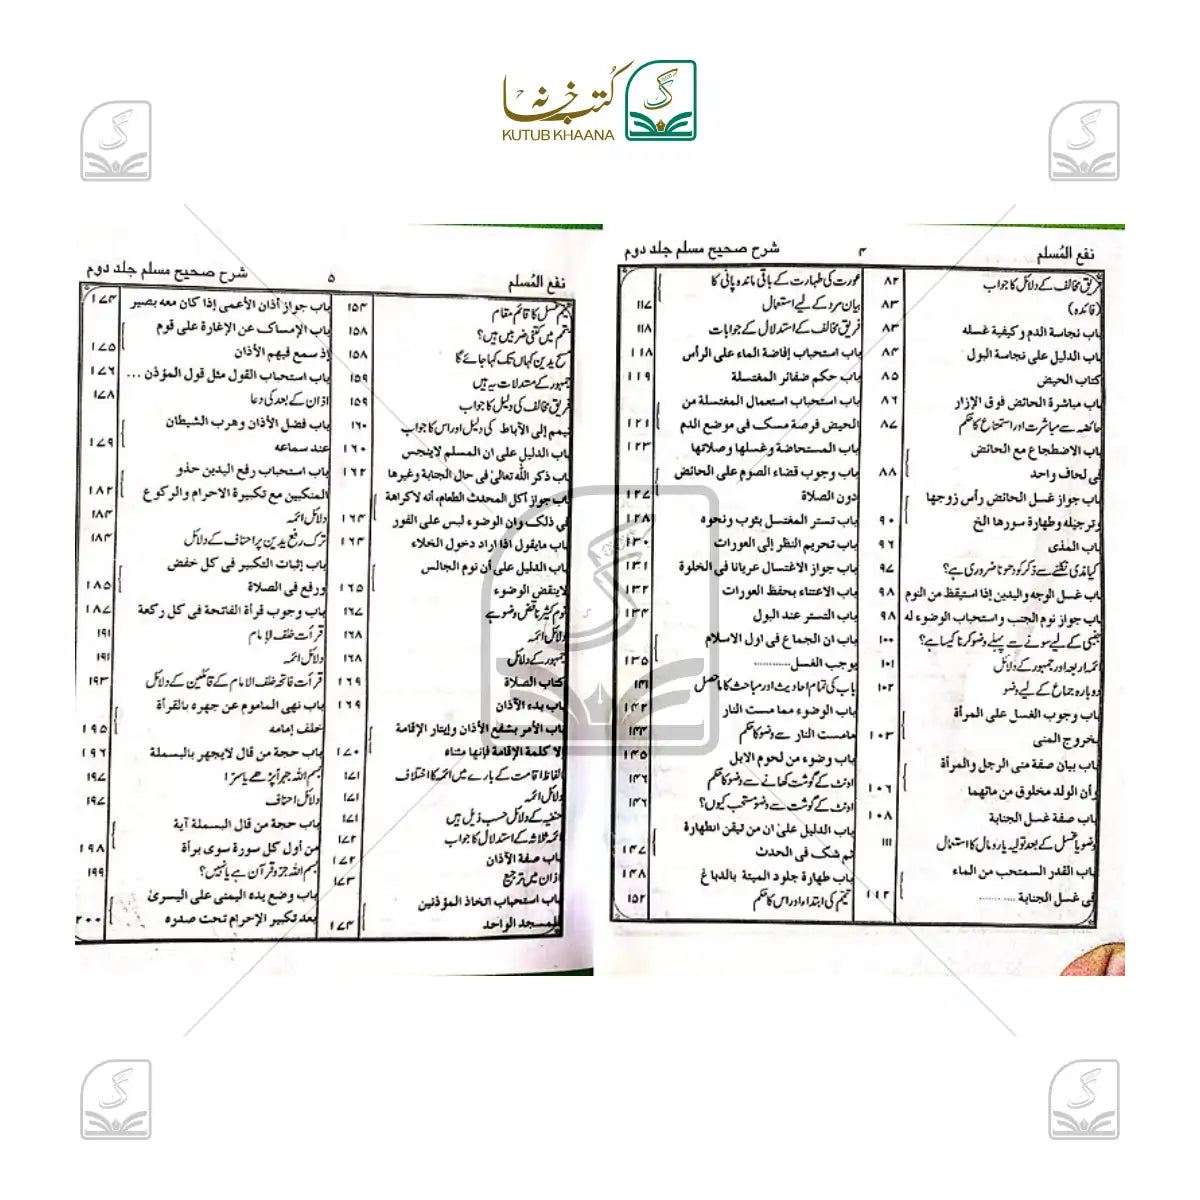 کتب خانہ
KUTUB KHAANA
نفع المُسلم ۴ شرح صحیح مسلم جلد دوم
فریق مخالف کے دلائل کا جواب ۸۲
(فائدہ) ۸۳
باب نجاسة الدم و کیفیة غسله ۸۳
باب الدلیل علی نجاسة البول ۸۴
کتاب الحیض ۸۵
باب مباشرة الحائض فوق الإزار ۸۶
حائضہ سے مباشرت اور استمتاع کا حکم ۸۷
باب الاضطجاع مع الحائض
فی لحاف واحد ۸۸
باب جواز غسل الحائض رأس زوجها
وترجیله وطهارة سورها الخ ۹۰
باب المذی ۹۶
کیا مذی نکلنے سے ذکر کو دھونا ضروری ہے؟ ۹۷
باب غسل الوجه والیدین إذا استیقظ من النوم ۹۸
باب جواز نوم الجنب واستحباب الوضوء له ۹۸
جنبی کے لیے سونے سے پہلے وضو کرنا کیسا ہے؟ ۱۰۰
ائمہ اربعہ اور جمہور کے دلائل ۱۰۱
دوبارہ جماع کے لیے وضو ۱۰۲
باب وجوب الغسل علی المرأة
بخروج المنی ۱۰۳
باب بیان صفة منی الرجل والمرأة
وأن الولد مخلوق من مائهما ۱۰۶
باب صفة غسل الجنابة ۱۰۸
وضو یا غسل کے بعد تولیہ یا رومال کا استعمال ۱۱۱
باب القدر المستحب من الماء
فی غسل الجنابة .......... ۱۱۲
عورت کی طہارت کے باقی ماندہ پانی کا
بیان مرد کے لیے استعمال ۱۱۷
فریق مخالف کے استدلال کے جوابات ۱۱۸
باب استحباب إفاضة الماء علی الرأس ۱۱۸
باب حکم ضفائر المغتسلة ۱۱۹
باب استحباب استعمال المغتسلة من
الحیض فرصة مسک فی موضع الدم ۱۲۱
باب المستحاضة وغسلها وصلاتها ۱۲۳
باب وجوب قضاء الصوم علی الحائض
دون الصلاة ۱۲۷
باب تستر المغتسل بثوب ونحوه ۱۲۸
باب تحریم النظر إلی العورات ۱۳۰
باب جواز الاغتسال عریانا فی الخلوة ۱۳۱
باب الاعتناء بحفظ العورات ۱۳۲
باب التستر عند البول ۱۳۴
باب ان الجماع فی اول الاسلام
یوجب الغسل............ ۱۳۵
باب کی تمام احادیث اور مباحث کا ماحصل ۱۴۱
باب الوضوء مما مست النار ۱۴۲
مامست النار سے وضو کا حکم ۱۴۴
باب وضوء من لحوم الابل ۱۴۵
اونٹ کے گوشت کھانے سے وضو کا حکم ۱۴۶
اونٹ کے گوشت سے وضو مستحب کیوں؟ ۱۴۶
باب الدلیل علیٰ ان من تیقن الطهارة
ثم شک فی الحدث ۱۴۷
باب طهارة جلود المیتة بالدباغ ۱۴۸
تیمم کی ابتداء اور اس کا حکم ۱۵۲
نفع المُسلم ۵ شرح صحیح مسلم جلد دوم
تیمم غسل کا قائم مقام ۱۵۴
تیمم میں کتنی ضربیں ہیں؟ ۱۵۸
مسح یدین کہاں تک کہا جائے گا ۱۵۸
جمہور کے مستدلات یہ ہیں ۱۵۹
فریق مخالف کی دلیل کا جواب ۱۵۹
تیمم إلی الآباط کی دلیل اور اس کا جواب ۱۶۰
باب الدلیل علی ان المسلم لاینجس ۱۶۰
باب ذکر الله تعالیٰ فی حال الجنابة وغیرها ۱۶۲
باب جواز أکل المحدث الطعام، أنه لاکراهة
فی ذلک وان الوضوء لیس علی الفور ۱۶۴
باب مایقول اذا اراد دخول الخلاء ۱۶۴
باب الدلیل علی أن نوم الجالس
لاینقض الوضوء ۱۶۵
نوم کثیر ناقض وضو ہے ۱۶۷
دلائل ائمہ ۱۶۸
جمہور کے دلائل ۱۶۸
کتاب الصلاة ۱۶۹
باب بدء الآذان ۱۶۹
باب الأمر بشفع الأذان وإیتار الإقامة
إلا کلمة الإقامة فإنها مثناه ۱۷۰
الفاظ اقامت کے بارے میں ائمہ کا اختلاف ۱۷۱
دلائل ائمہ ۱۷۱
حنفیہ کے دلائل حسب ذیل ہیں ۱۷۱
ائمہ ثلاثہ کے استدلال کا جواب ۱۷۲
باب صفة الآذان ۱۷۲
اذان میں ترجیع ۱۷۳
باب استحباب اتخاذ المؤذنین
للمسجد الواحد ۱۷۴
باب جواز أذان الأعمی إذا کان معه بصیر ۱۷۴
باب الإمساک عن الإغارة علی قوم
إذ سمع فیهم الأذان ۱۷۵
باب استحباب القول مثل قول المؤذن ... ۱۷۶
اذان کے بعد کی دعا ۱۷۸
باب فضل الأذان وهرب الشیطان
عند سماعه ۱۷۹
باب استحباب رفع الیدین حذو
المنکبین مع تکبیرة الاحرام والرکوع ۱۸۲
دلائل ائمہ ۱۸۴
ترک رفع یدین پر احناف کے دلائل ۱۸۴
باب إثبات التکبیر فی کل خفض
ورفع فی الصلاة ۱۸۵
باب وجوب قرأة الفاتحة فی کل رکعة ۱۸۷
قرأت خلف الإمام ۱۹۱
دلائل ائمہ ۱۹۱
قرأت فاتحہ خلف الامام کے قائلین کے دلائل ۱۹۳
باب نهی الماموم عن جهره بالقرأة
خلف إمامه ۱۹۵
باب حجة من قال لایجهر بالبسملة ۱۹۶
بسم اللہ جہراً پڑھے یا سراً ۱۹۷
دلائل احناف ۱۹۷
باب حجة من قال البسملة آیة
من أول کل سورة سوی برأة ۱۹۸
بسم اللہ جزو قرآن ہے یا نہیں؟ ۱۹۹
باب وضع یده الیمنی علی الیسریٰ
بعد تکبیر الإحرام تحت صدره ۲۰۰